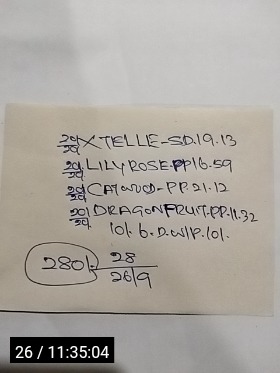 20/20 XTELLE-SD.19.13
20/20 LILYROSE.PP16.59
20/20 CATWOOD-PP.21.12
20/20 DRAGONFRUIT.PP.11.32
10/. 6. D.W/P. 10/.
280/. 28
26/9
26 / 11:35:04